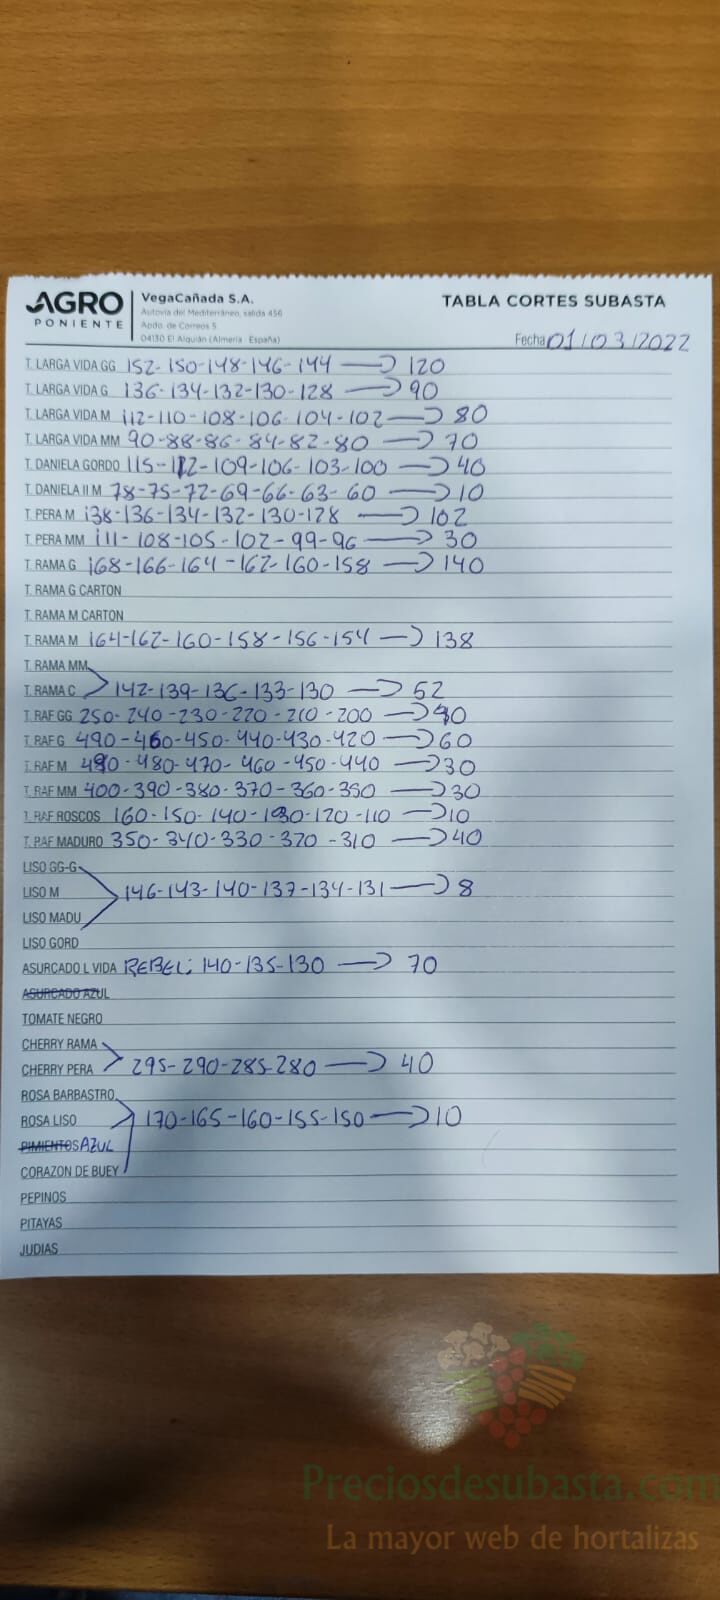 AGRO PONIENTE
VegaCañada S.A.
Autovía del Mediterráneo, salida 456
Apdo. de Correos 5
04130 El Alquián (Almería · España)
TABLA CORTES SUBASTA
Fecha 01/03/2022
T. LARGA VIDA GG 152-150-148-146-144 → 120
T. LARGA VIDA G 136-134-132-130-128 → 90
T. LARGA VIDA M 112-110-108-106-104-102 → 80
T. LARGA VIDA MM 90-88-86-84-82-80 → 70
T. DANIELA GORDO 115-112-109-106-103-100 → 40
T. DANIELA II M 78-75-72-69-66-63-60 → 10
T. PERA M 138-136-134-132-130-128 → 102
T. PERA MM 111-108-105-102-99-96 → 30
T. RAMA G 168-166-164-162-160-158 → 140
T. RAMA G CARTON
T. RAMA M CARTON
T. RAMA M 164-162-160-158-156-154 → 138
T. RAMA MM
T. RAMA C 142-139-136-133-130 → 52
T. RAF GG 250-240-230-220-210-200 → 90
T. RAF G 490-460-450-440-430-420 → 60
T. RAF M 490-480-470-460-450-440 → 30
T. RAF MM 400-390-380-370-360-350 → 30
T. RAF ROSCOS 160-150-140-130-120-110 → 10
T. RAF MADURO 350-340-330-320-310 → 40
LISO GG-G
LISO M 146-143-140-137-134-131 → 8
LISO MADU
LISO GORD
ASURCADO L VIDA REBEL: 140-135-130 → 70
ASURCADO AZUL
TOMATE NEGRO
CHERRY RAMA
CHERRY PERA 295-290-285-280 → 40
ROSA BARBASTRO
ROSA LISO 170-165-160-155-150 → 10
PIMIENTOS AZUL
CORAZON DE BUEY
PEPINOS
PITAYAS
JUDIAS
Preciosdesubasta.com
La mayor web de hortalizas